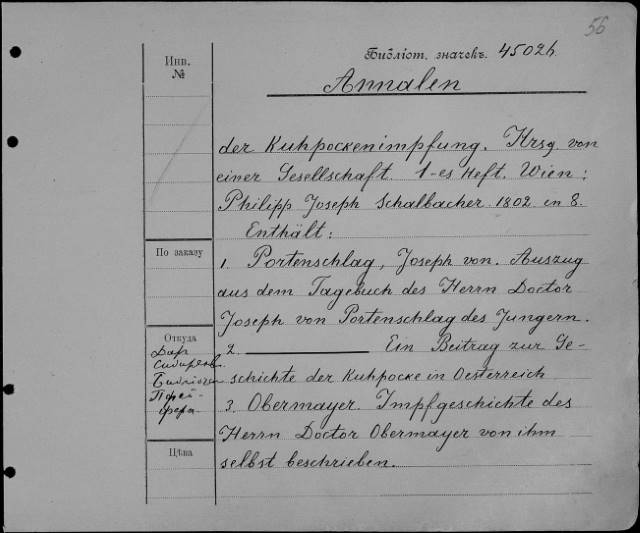 56
Инв. №
Библіот. значекъ. 4502h.
Annalen
der Kuhpockenimpfung. Hrsg. von
einer Gesellschaft. 1-es Heft. Wien:
Philipp Joseph Schalbacher 1802. in 8.
Enthält:
По заказу
1. Portenschlag, Joseph von. Auszug
aus dem Tagebuch des Herrn Doctor
Joseph von Portenschlag des Jungern.
Откуда
Даръ
Библіотек
2. ———— Ein Beitrag zur Ge-
schichte der Kuhpocke in Oesterreich
3. Obermayer. Impfgeschichte des
Herrn Doctor Obermayer von ihm
selbst beschrieben.
Цѣна